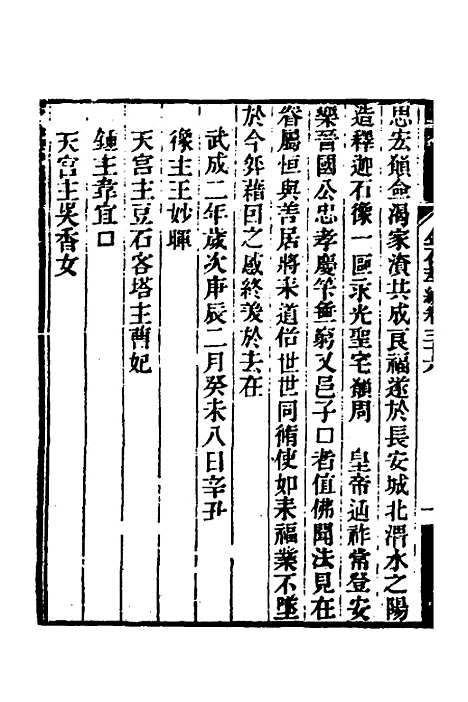 金石萃編卷三十六
一
思宏願僉渴家資共成良福遂於長安城北渭水之陽
造釋迦石像一區永光聖宅願周　皇帝延祚常登安
樂晉國公忠孝慶笇無窮又邑子口者值佛聞法見在
眷屬恒與善居將來道俗世世同脩使如來福業不墜
於今弈藉回之感終美於去在
武成二年歲次庚辰二月癸未八日辛丑
像主王妙暉
天宮主豆石客塔主曹妃
鍾主韋宜口
天宮主吳香女